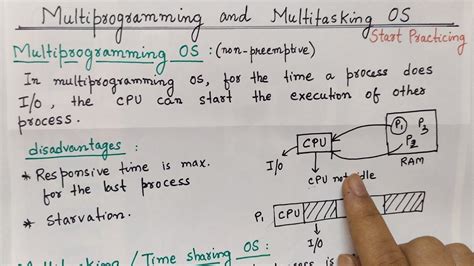 Multiprogramming and Multitasking OS
Start Practicing
Multiprogramming OS : (non-preemptive)
In multiprogramming OS, for the time a process does
I/O, the CPU can start the execution of other
process.
disadvantages :
* Responsive time is max.
for the last process
* Starvation.
CPU
P1 P3
P2
RAM
I/O
CPU not idle
P1 CPU
I/O
Multitasking / Time sharing OS :
is